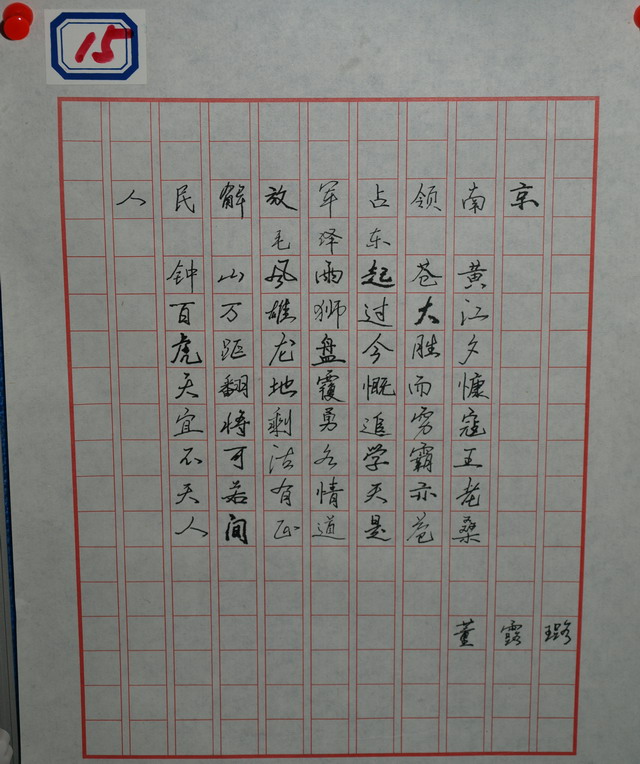 15
人民解放军占领南京
毛泽东
钟山风雨起苍黄
百万雄狮过大江
虎距龙盘今胜夕
天翻地覆慨而慷
宜将剩勇追穷寇
不可沽名学霸王
天若有情天亦老
人间正道是苍桑
董露璐